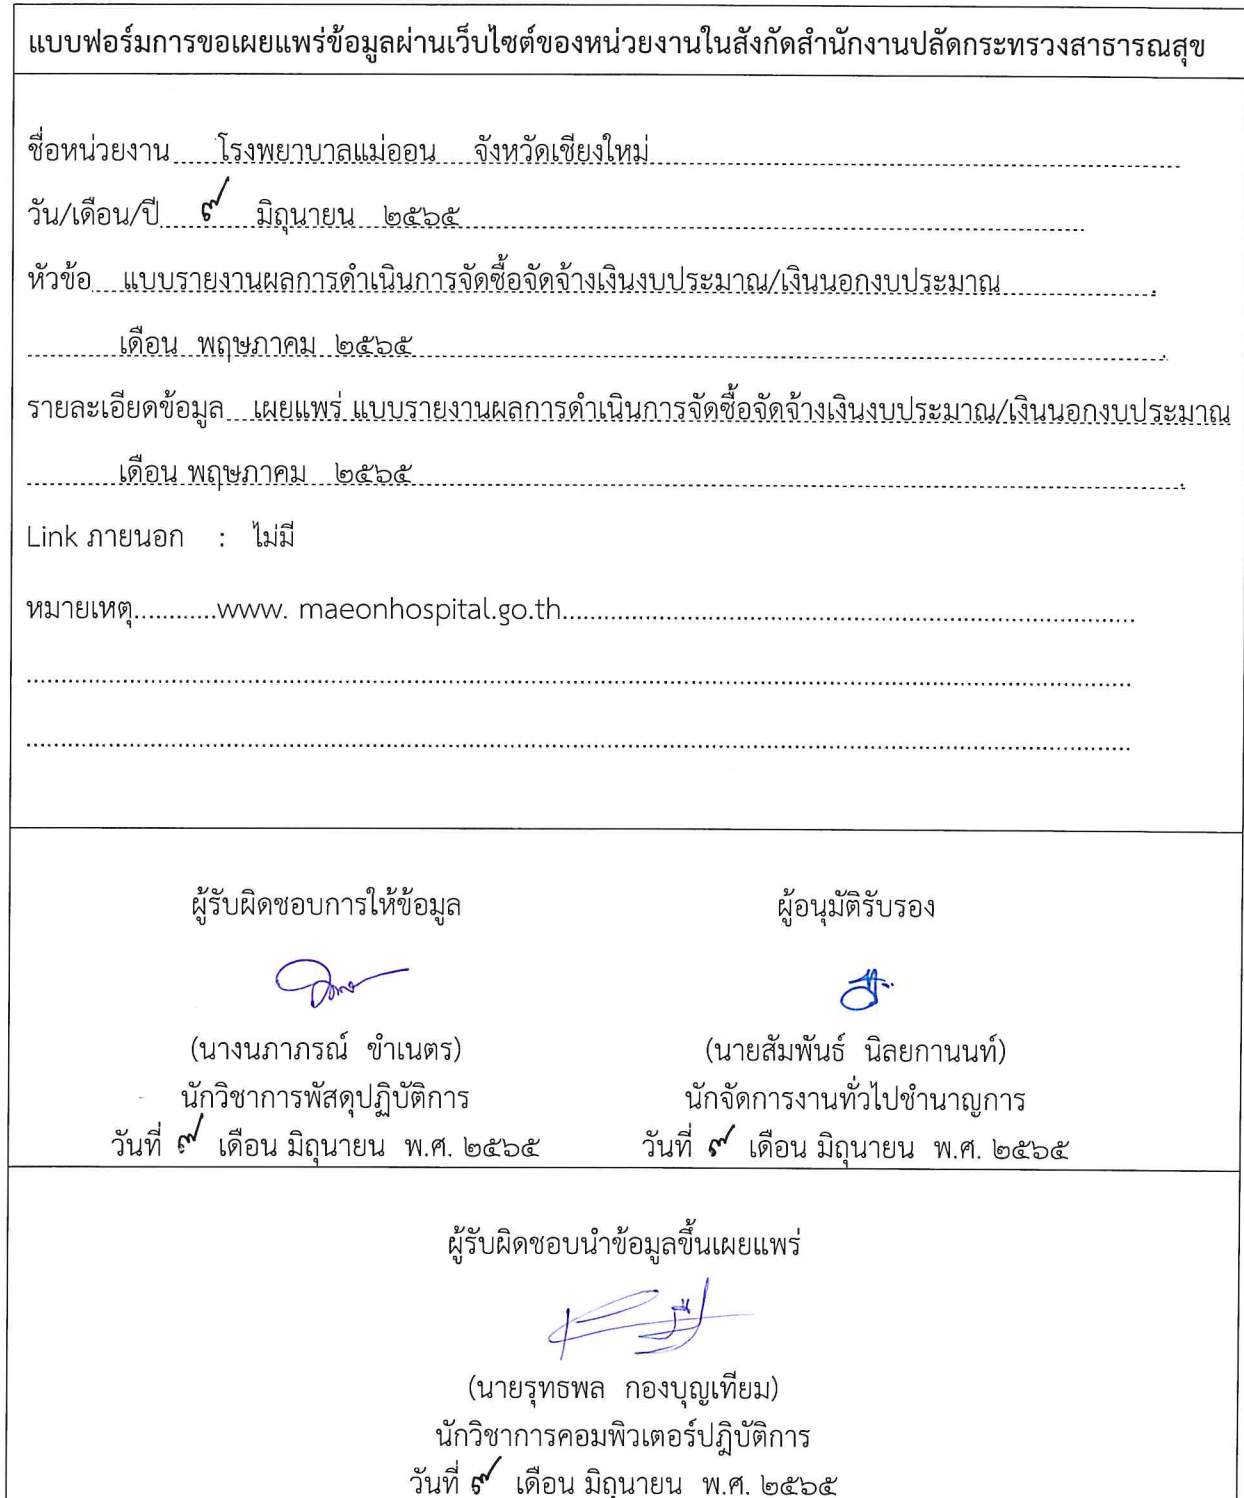 แบบฟอร์มการขอเผยแพร่ข้อมูลผ่านเว็บไซต์ของหน่วยงานในสังกัดสำนักงานปลัดกระทรวงสาธารณสุข
ชื่อหน่วยงาน.....โรงพยาบาลแม่ออน จังหวัดเชียงใหม่.....
วัน/เดือน/ปี.....๙ มิถุนายน ๒๕๖๕.....
หัวข้อ.....แบบรายงานผลการดำเนินการจัดซื้อจัดจ้างเงินงบประมาณ/เงินนอกงบประมาณ.....
.....เดือน พฤษภาคม ๒๕๖๕.....
รายละเอียดข้อมูล...เผยแพร่ แบบรายงานผลการดำเนินการจัดซื้อจัดจ้างเงินงบประมาณ/เงินนอกงบประมาณ
.....เดือน พฤษภาคม ๒๕๖๕.....
Link ภายนอก : ไม่มี
หมายเหตุ............www. maeonhospital.go.th.....
ผู้รับผิดชอบการให้ข้อมูล ผู้อนุมัติรับรอง
(นางนภาภรณ์ ขำเนตร) (นายสัมพันธ์ นิลยกานนท์)
นักวิชาการพัสดุปฏิบัติการ นักจัดการงานทั่วไปชำนาญการ
วันที่ ๙ เดือน มิถุนายน พ.ศ. ๒๕๖๕ วันที่ ๙ เดือน มิถุนายน พ.ศ. ๒๕๖๕
ผู้รับผิดชอบนำข้อมูลขึ้นเผยแพร่
(นายรุทธพล กองบุญเทียม)
นักวิชาการคอมพิวเตอร์ปฏิบัติการ
วันที่ ๙ เดือน มิถุนายน พ.ศ. ๒๕๖๕